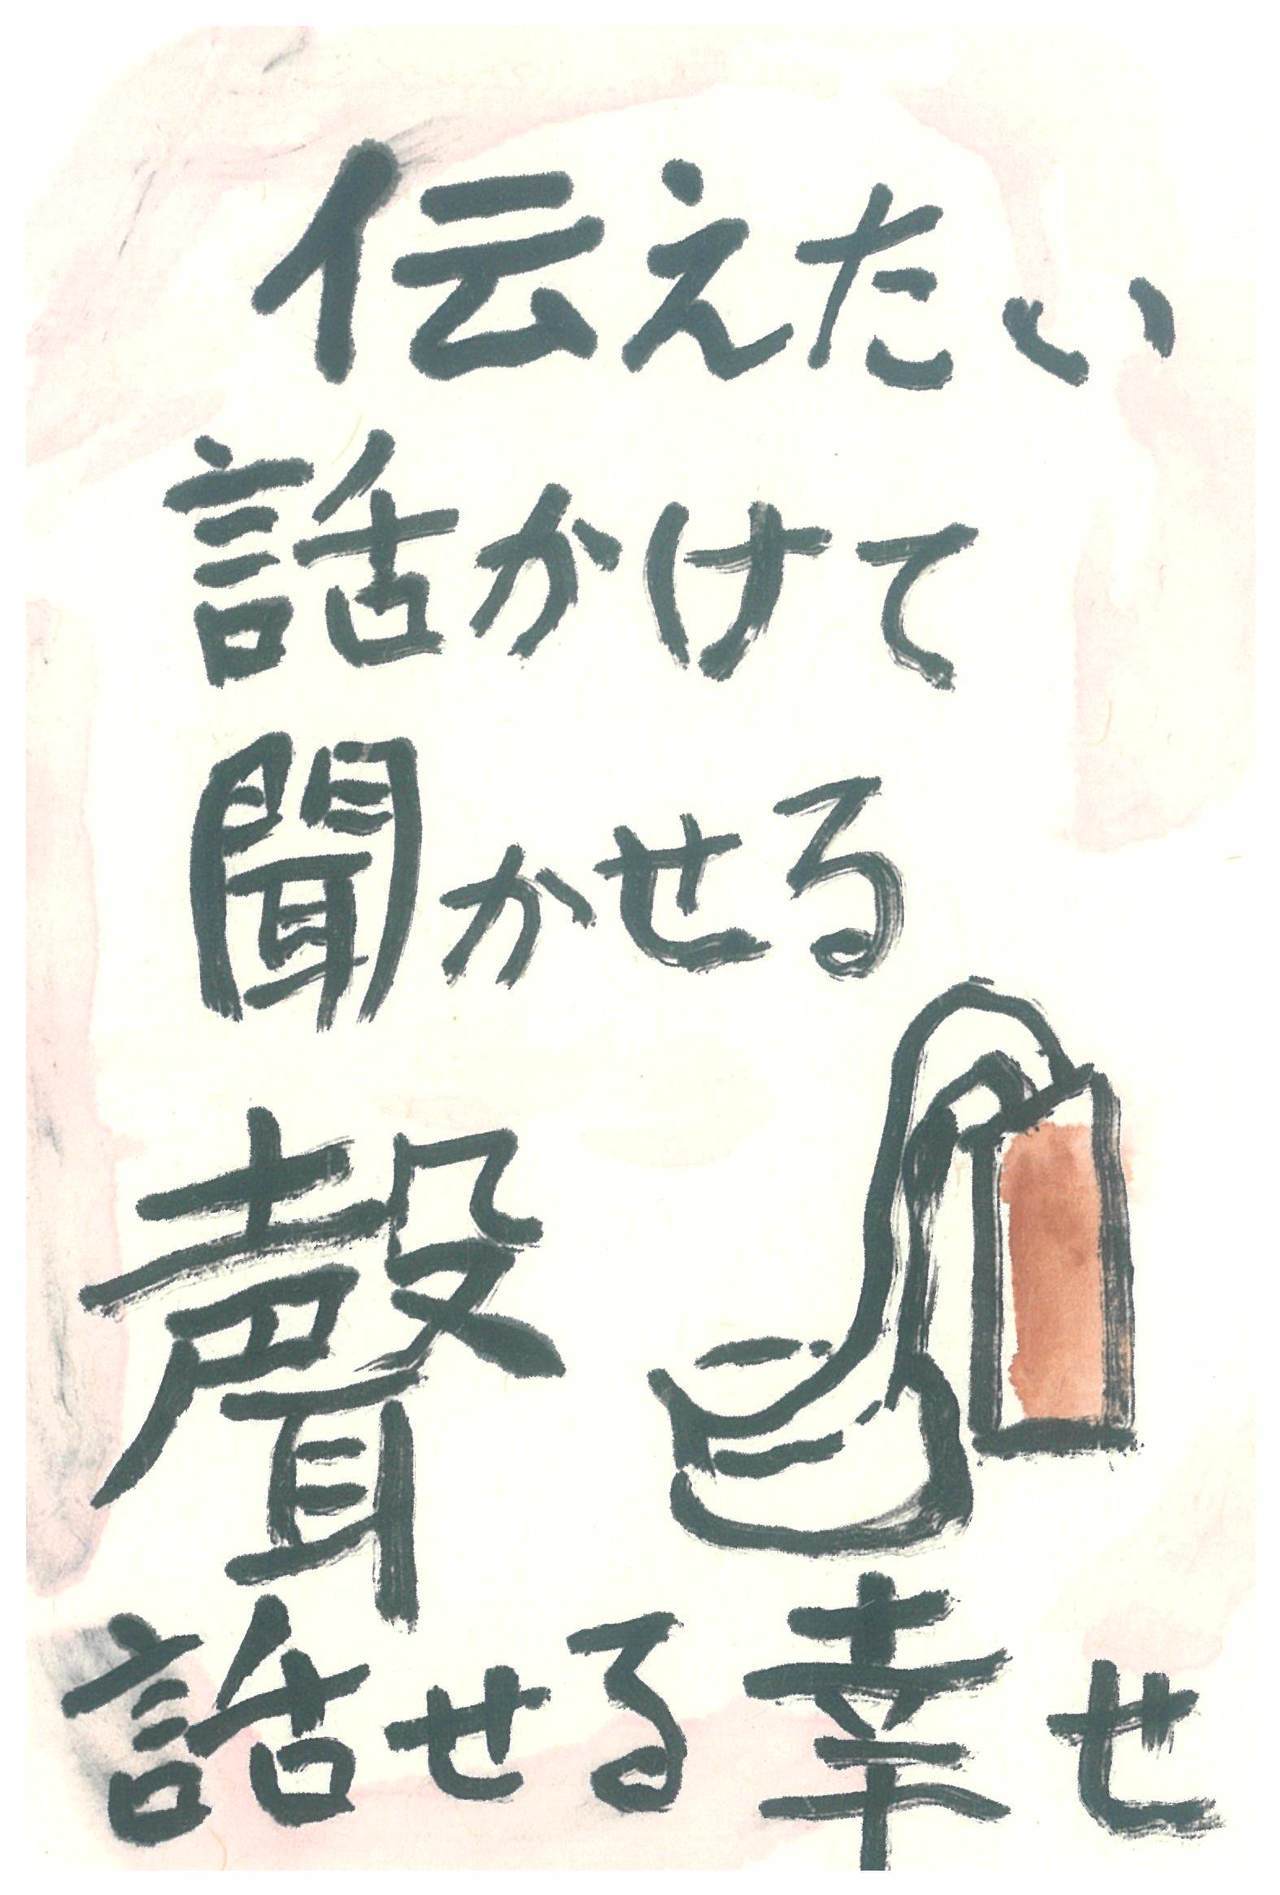 伝えたい
話かけて
聞かせる
聲
話せる幸せ